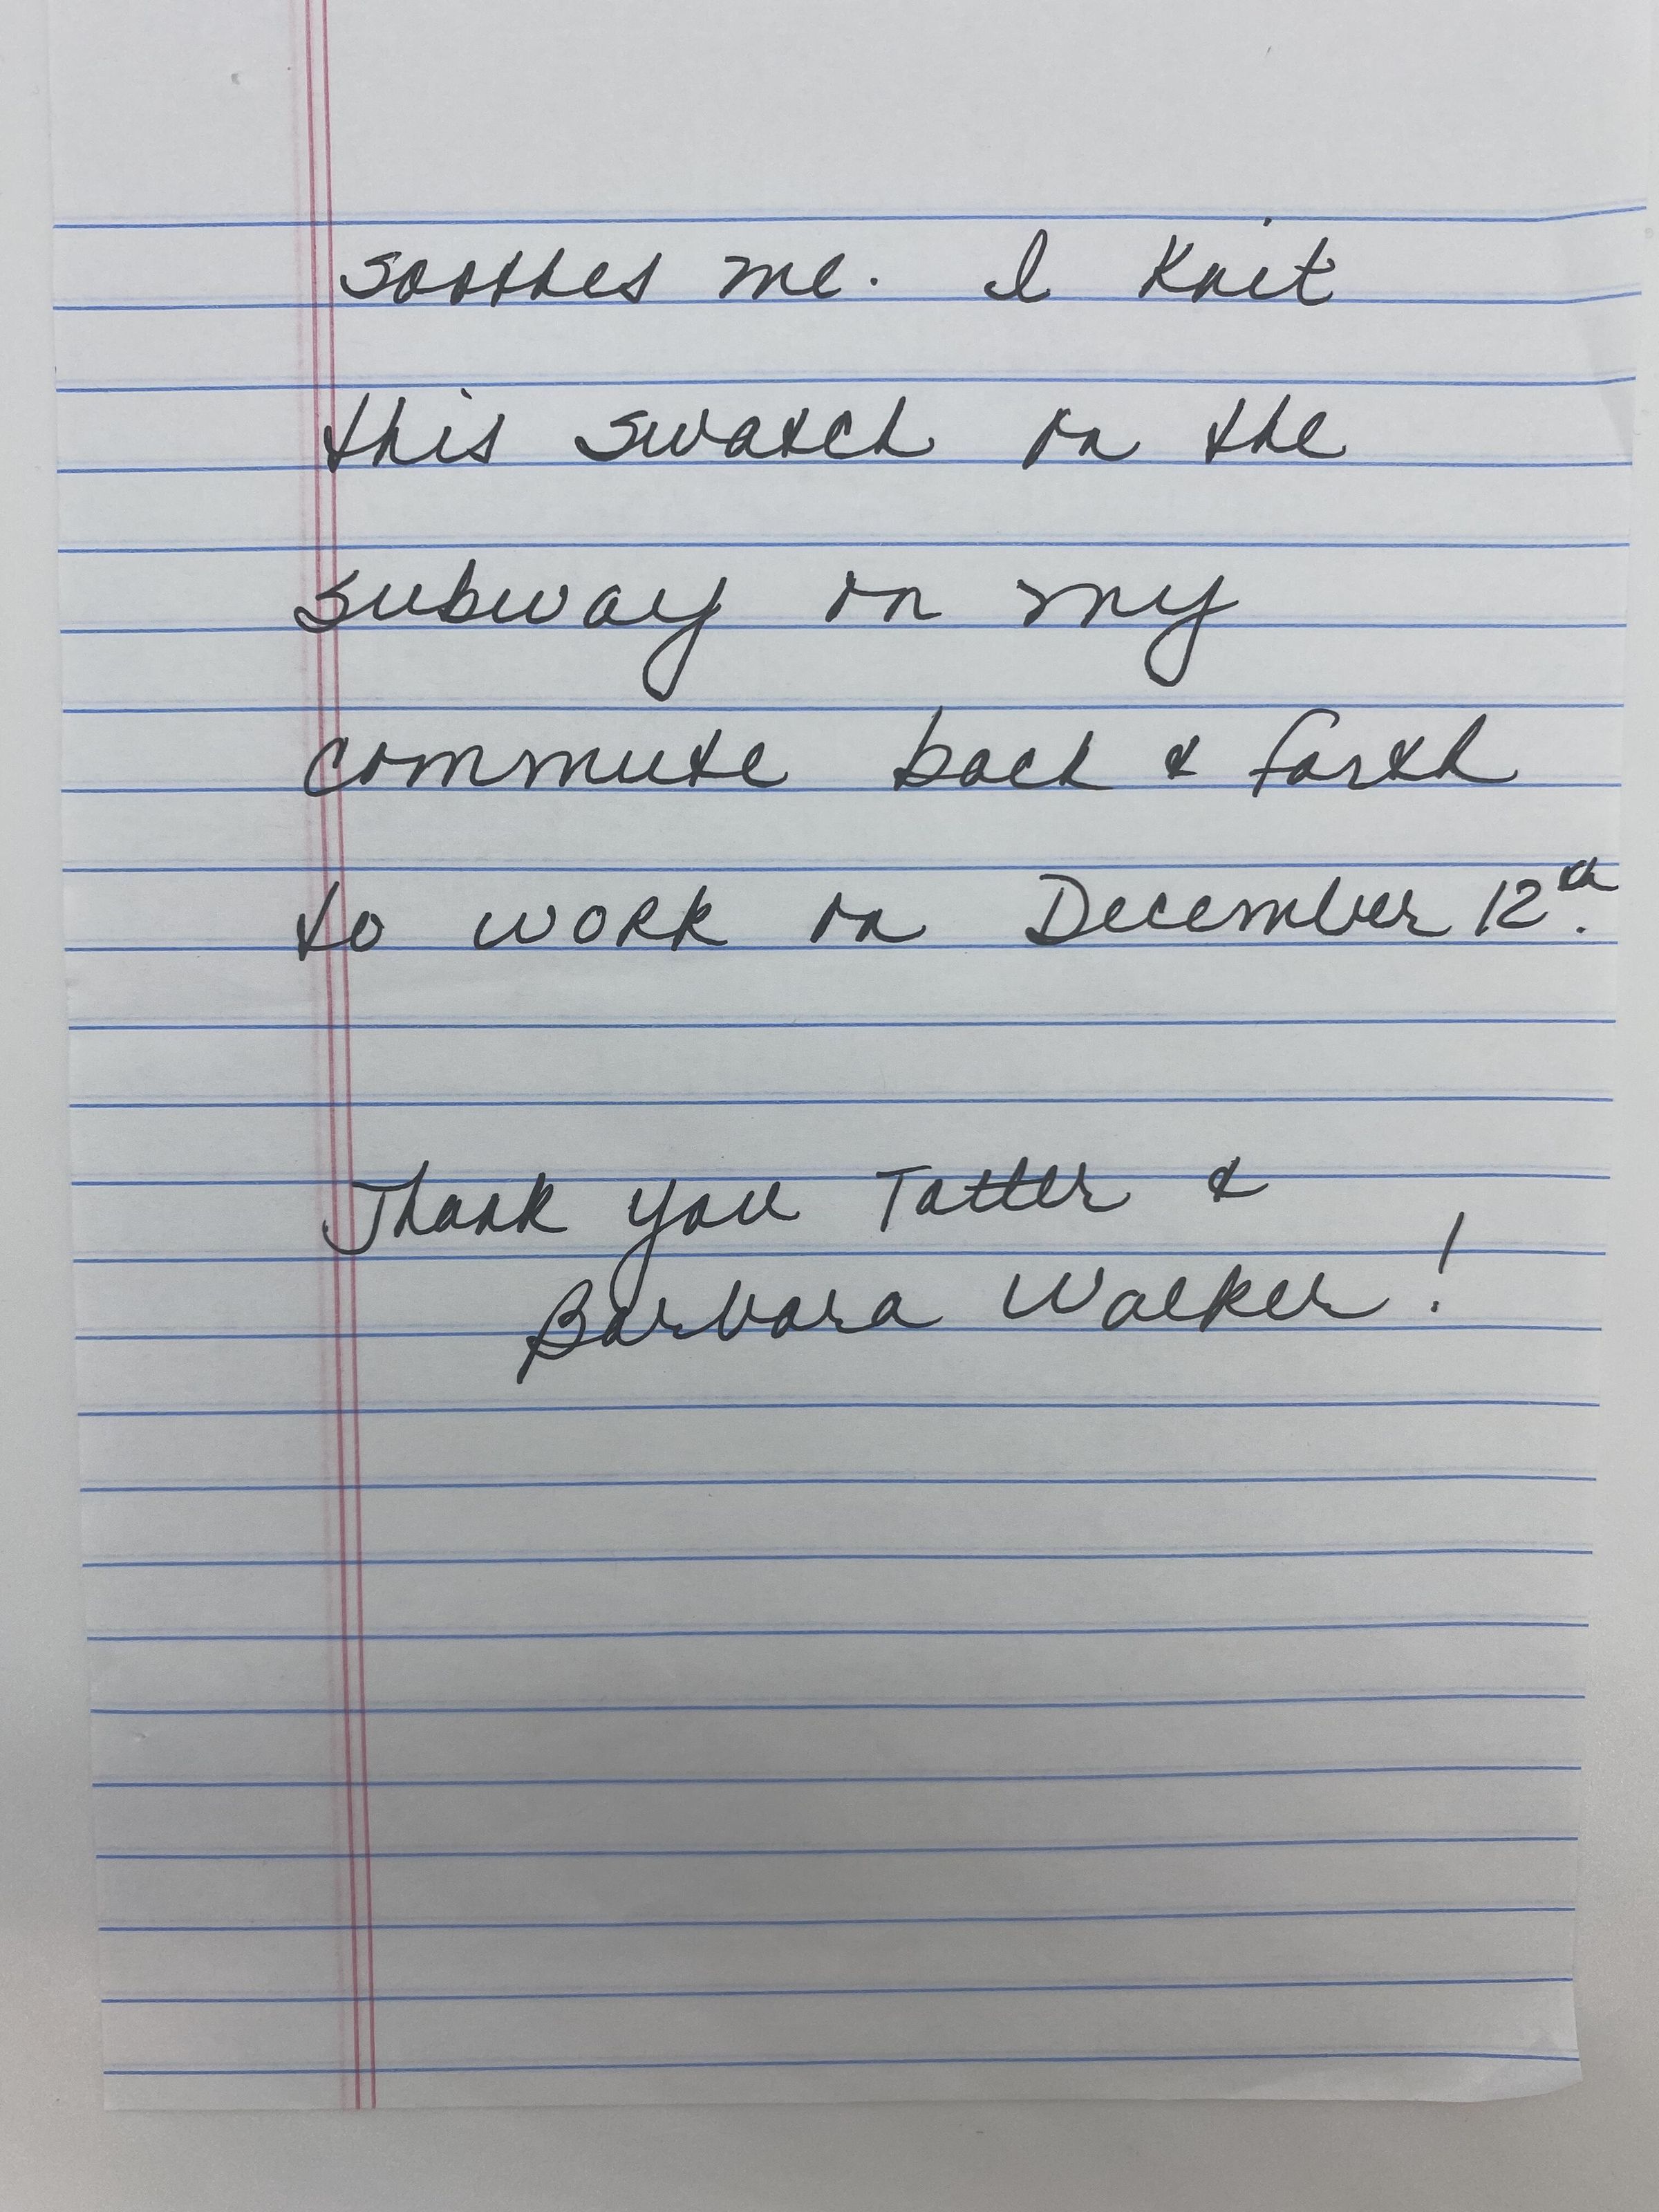 soothes me. I Knit
this swatch on the
subway on my
commute back & forth
to work on December 12th.
Thank you Tatter &
Barbara Walker!